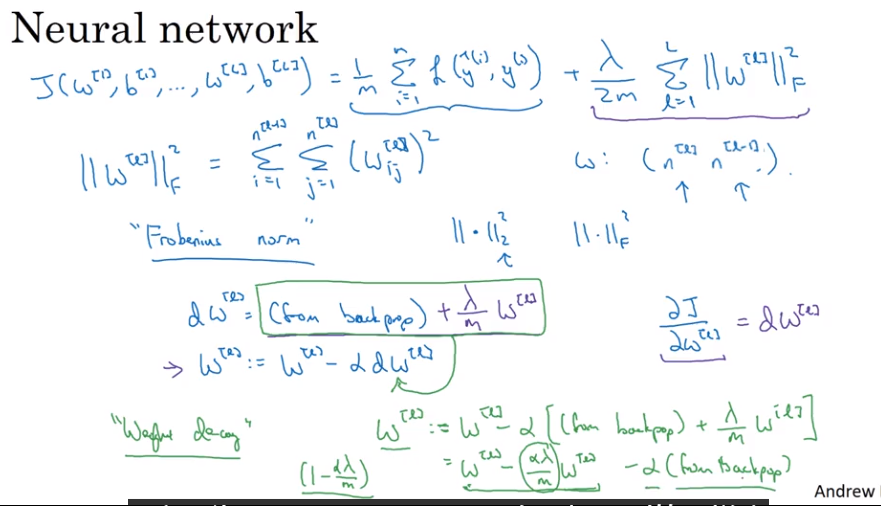 Neural network
J(w^[1], b^[1], ..., w^[L], b^[L]) = 1/m Σ_{i=1}^{n} L(ŷ^(i), y^(i)) + λ/2m Σ_{l=1}^{L} ||w^[l]||²_F
||w^[l]||²_F = Σ_{i=1}^{n^[l-1]} Σ_{j=1}^{n^[l]} (w_ij^[l])²  w: (n^[l] n^[l-1]).
"Frobenius norm"  ||·||²_2  ||·||²_F
dw^[l] = (from backprop) + λ/m w^[l]
∂J/∂w^[l] = dw^[l]
→ w^[l] := w^[l] - α dw^[l]
"Weight decay"  w^[l] := w^[l] - α [(from backprop) + λ/m w^[l]]
(1 - αλ/m)  = w^[l] - αλ/m w^[l] - α (from backprop)
Andrew